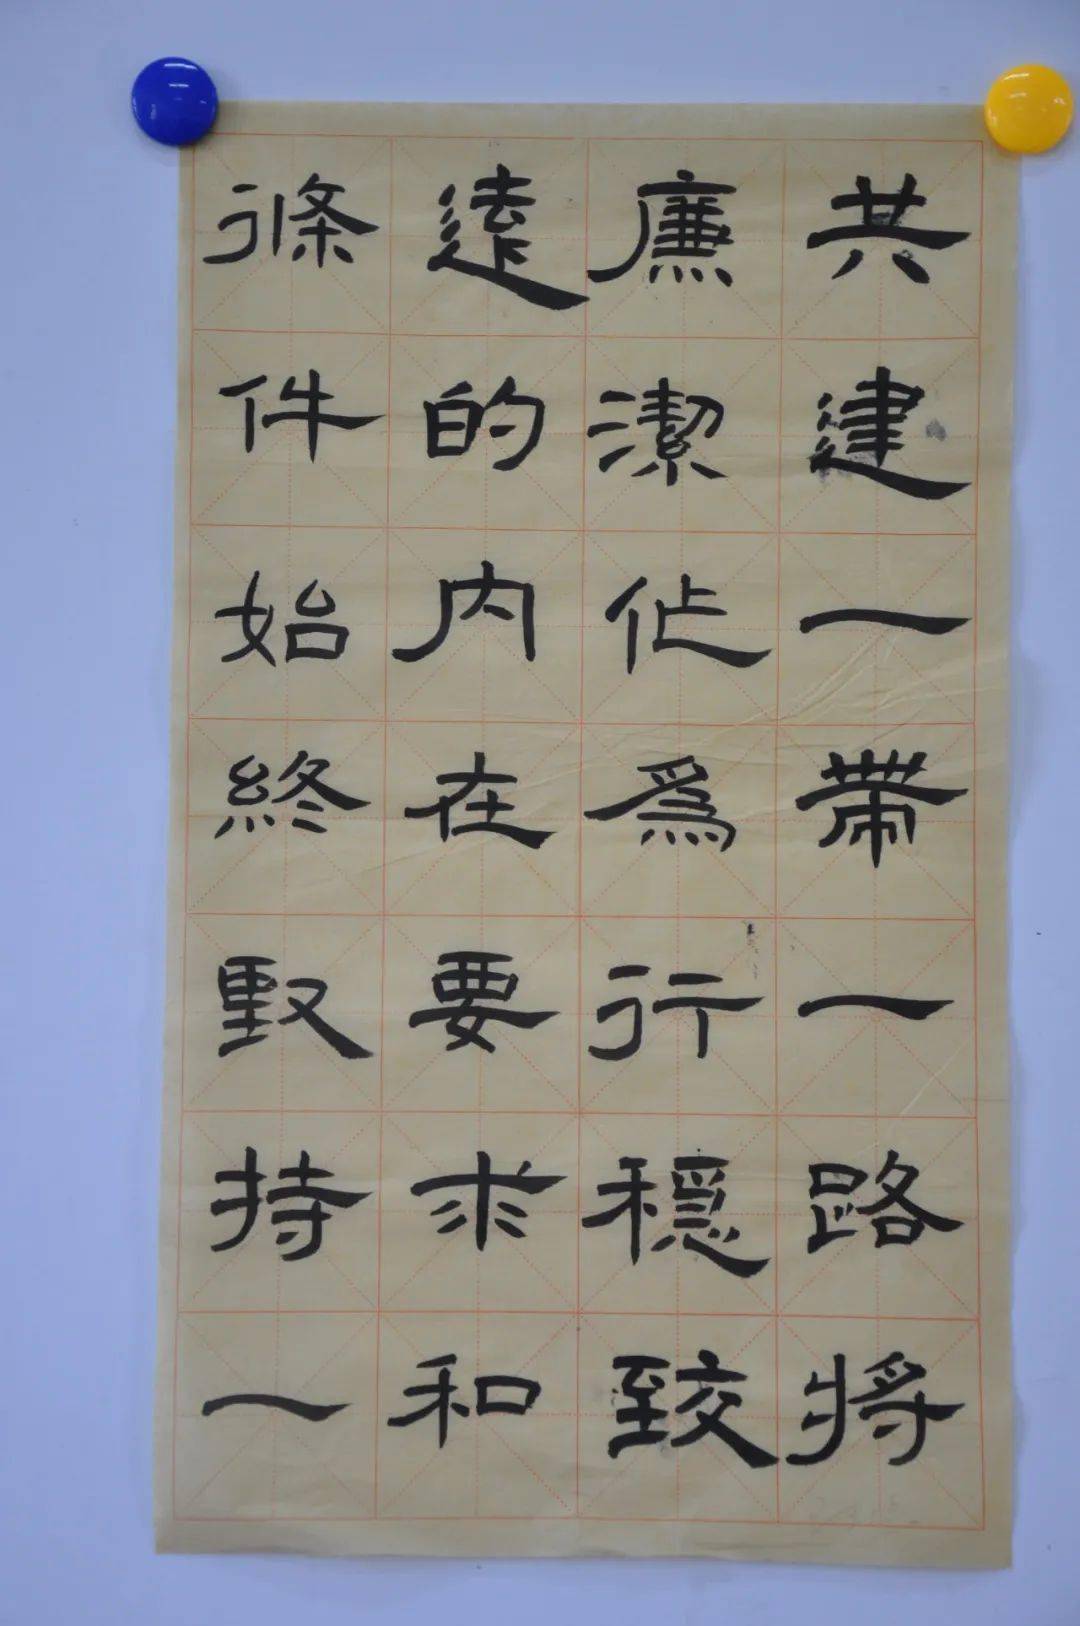 共建一帶一路將
廉潔作為行穩致
遠的內在要求和
條件始終堅持一